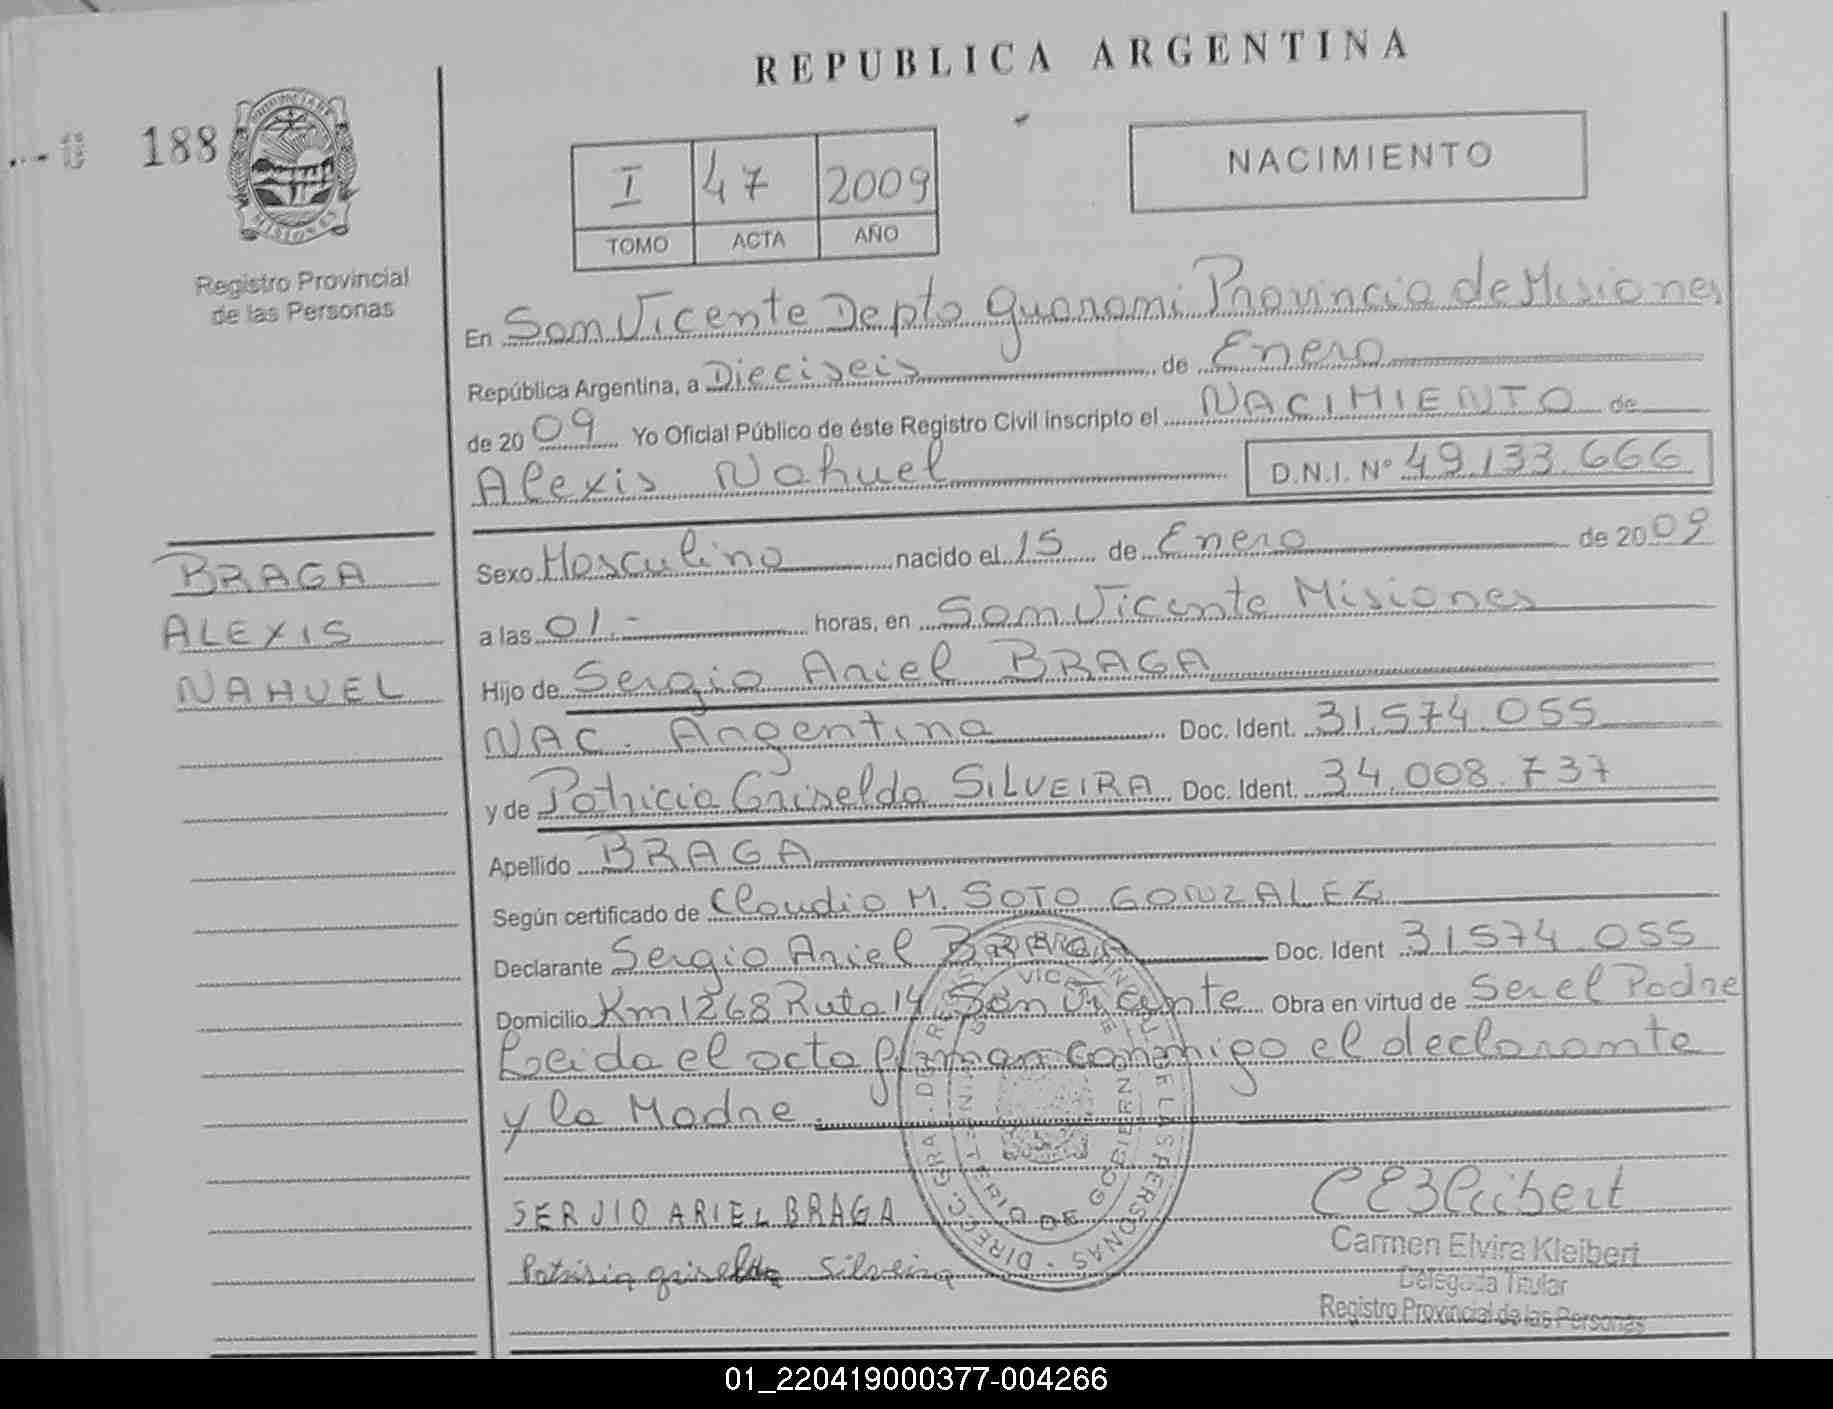 REPUBLICA ARGENTINA
188
NACIMIENTO
I 47 2009
TOMO ACTA AÑO
MISIONES
Registro Provincial
de las Personas
En San Vicente Depto Guarani Provincia de Misiones
República Argentina, a Dieciseis de Enero
de 2009 Yo Oficial Público de éste Registro Civil inscripto el NACIMIENTO de
Alexis Nahuel D.N.I. Nº 49.133.666
BRAGA
ALEXIS
NAHUEL
Sexo Masculino nacido el 15 de Enero de 2009
a las 01.- horas, en San Vicente Misiones
Hijo de Sergio Ariel BRAGA
NAC. Argentina Doc. Ident. 31.574.055
y de Patricia Griselda SILVEIRA Doc. Ident. 34.008.737
Apellido BRAGA
Según certificado de Claudio M. SOTO GONZALEZ
Declarante Sergio Ariel BRAGA Doc. Ident 31574.055
Domicilio Km 1268 Ruta 14 San Vicente Obra en virtud de Ser el Padre
Leida el acta firman conmigo el declarante
y la Madre.
SERJIO ARIEL BRAGA
Patrisia griselda Silveira
CEKleibert
Carmen Elvira Kleibert
Delegada Titular
Registro Provincial de las Personas
01_220419000377-004266